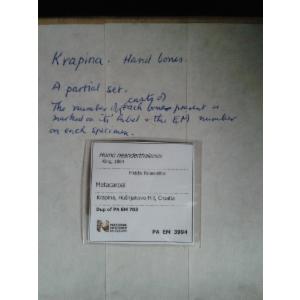 Krapina. Hand bones.
A partial set.
casts of
The number of each bone present is
marked on its label + the EM number
on each specimen.
Homo neanderthalensis
King, 1864
Middle Palaeolithic
Metacarpal
Krapina, Hušnjakovo Hill, Croatia
Dup of PA EM 703
NATURAL
HISTORY
MUSEUM
PA EM 3994